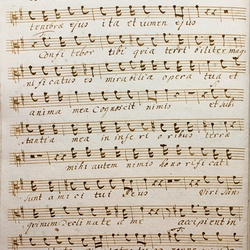 tentora ejus ita et lumen ejus
Confitebor tibi quia terribiliter mag:
nificatus es mirabilia opera tua et
anima mea Cognoscit nimis et sub
stantia mea in inferioribus terræ
mihi autem nimis honorificati
sunt amici tui Deus Viri San:
guinum declinate a me accipient in